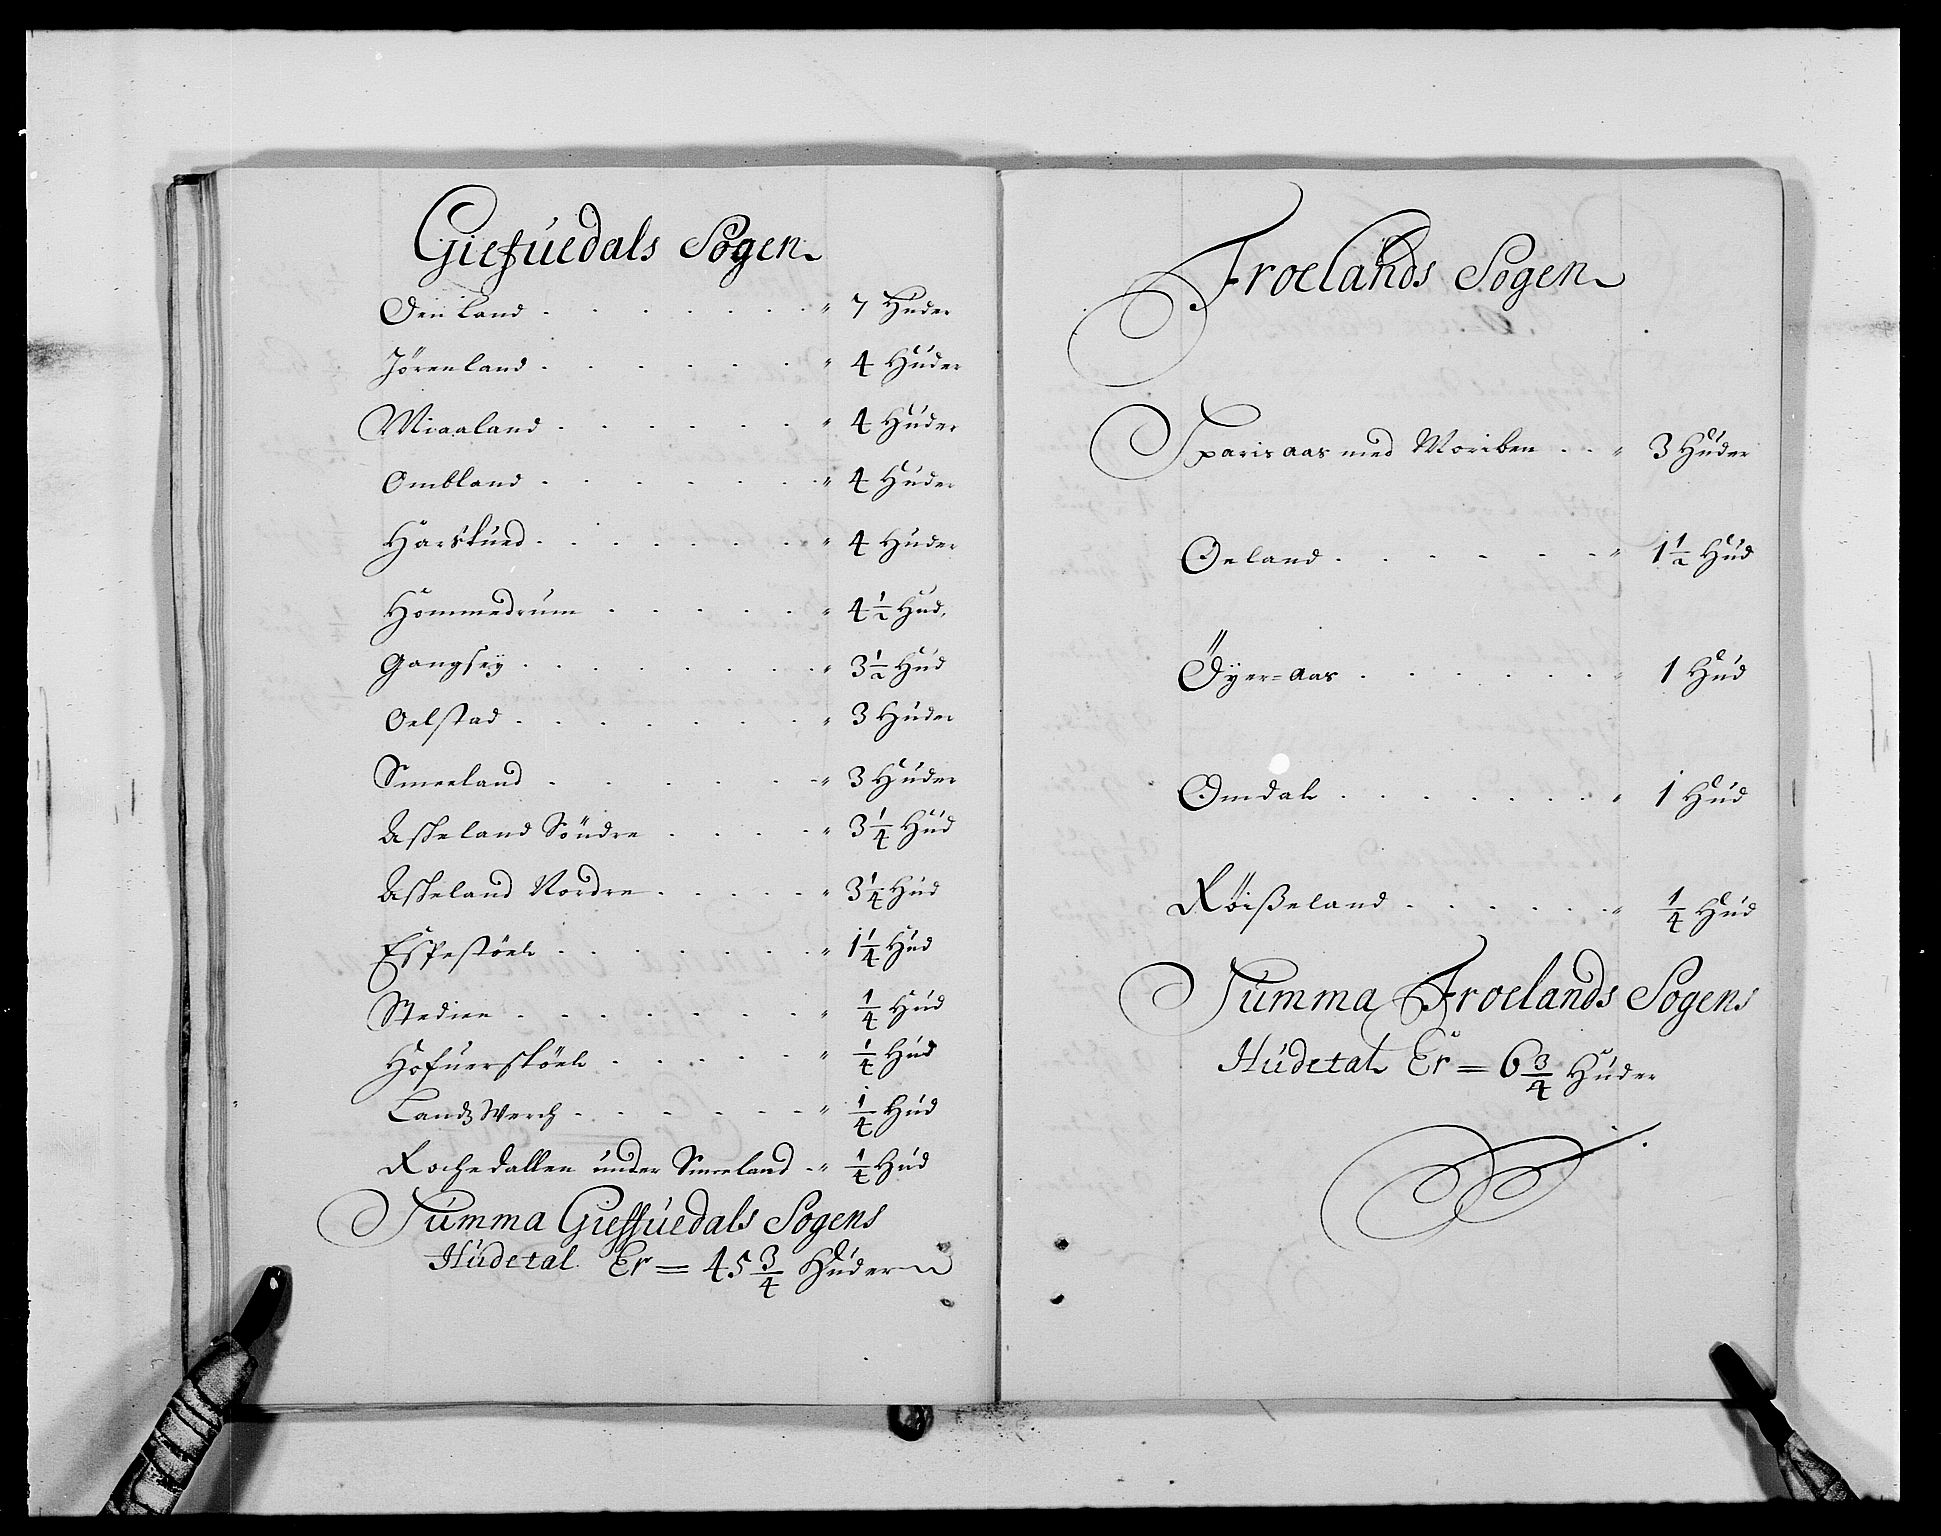 Giefuedals Sogen
Øeiland . . . . . . . " 7 Huder
Jörenland . . . . . . " 4 Huder
Miaaland . . . . . . " 4 Huder
Ombland . . . . . . . " 4 Huder
Harskued . . . . . . . " 4 Huder
Hommedrum . . . . . " 4 1/2 Hud.
Gangsey . . . . . . . " 3 1/2 Hud
Oelstad . . . . . . . " 3 Huder
Smeeland . . . . . . " 3 Huder
Askeland Söndre . . . . " 3 1/4 Hud
Askeland Nordre . . . . . " 3 1/4 Hud
Espestöel . . . . . . . " 1 1/4 Hud
Stedien . . . . . . . " 1/4 Hud
Hofuerstöel . . . . . " 1/4 Hud
Landz Werch . . . . . . " 1/4 Hud
Rochedallen under Smeeland . " 1/4 Hud
Summa Gieffuedals Sogens
Hudetal Er = 45 3/4 Huder
Froelands Sogen
Sparisaas med Moriben . . " 3 Huder
Oeland . . . . . . . " 1 1/2 Hud
Öyer=aas . . . . . . " 1 Hud
Omdal . . . . . . . " 1 Hud
Röißeland . . . . . . " 1/4 Hud
Summa Froelands Sogens
Hudetal Er = 6 3/4 Huder